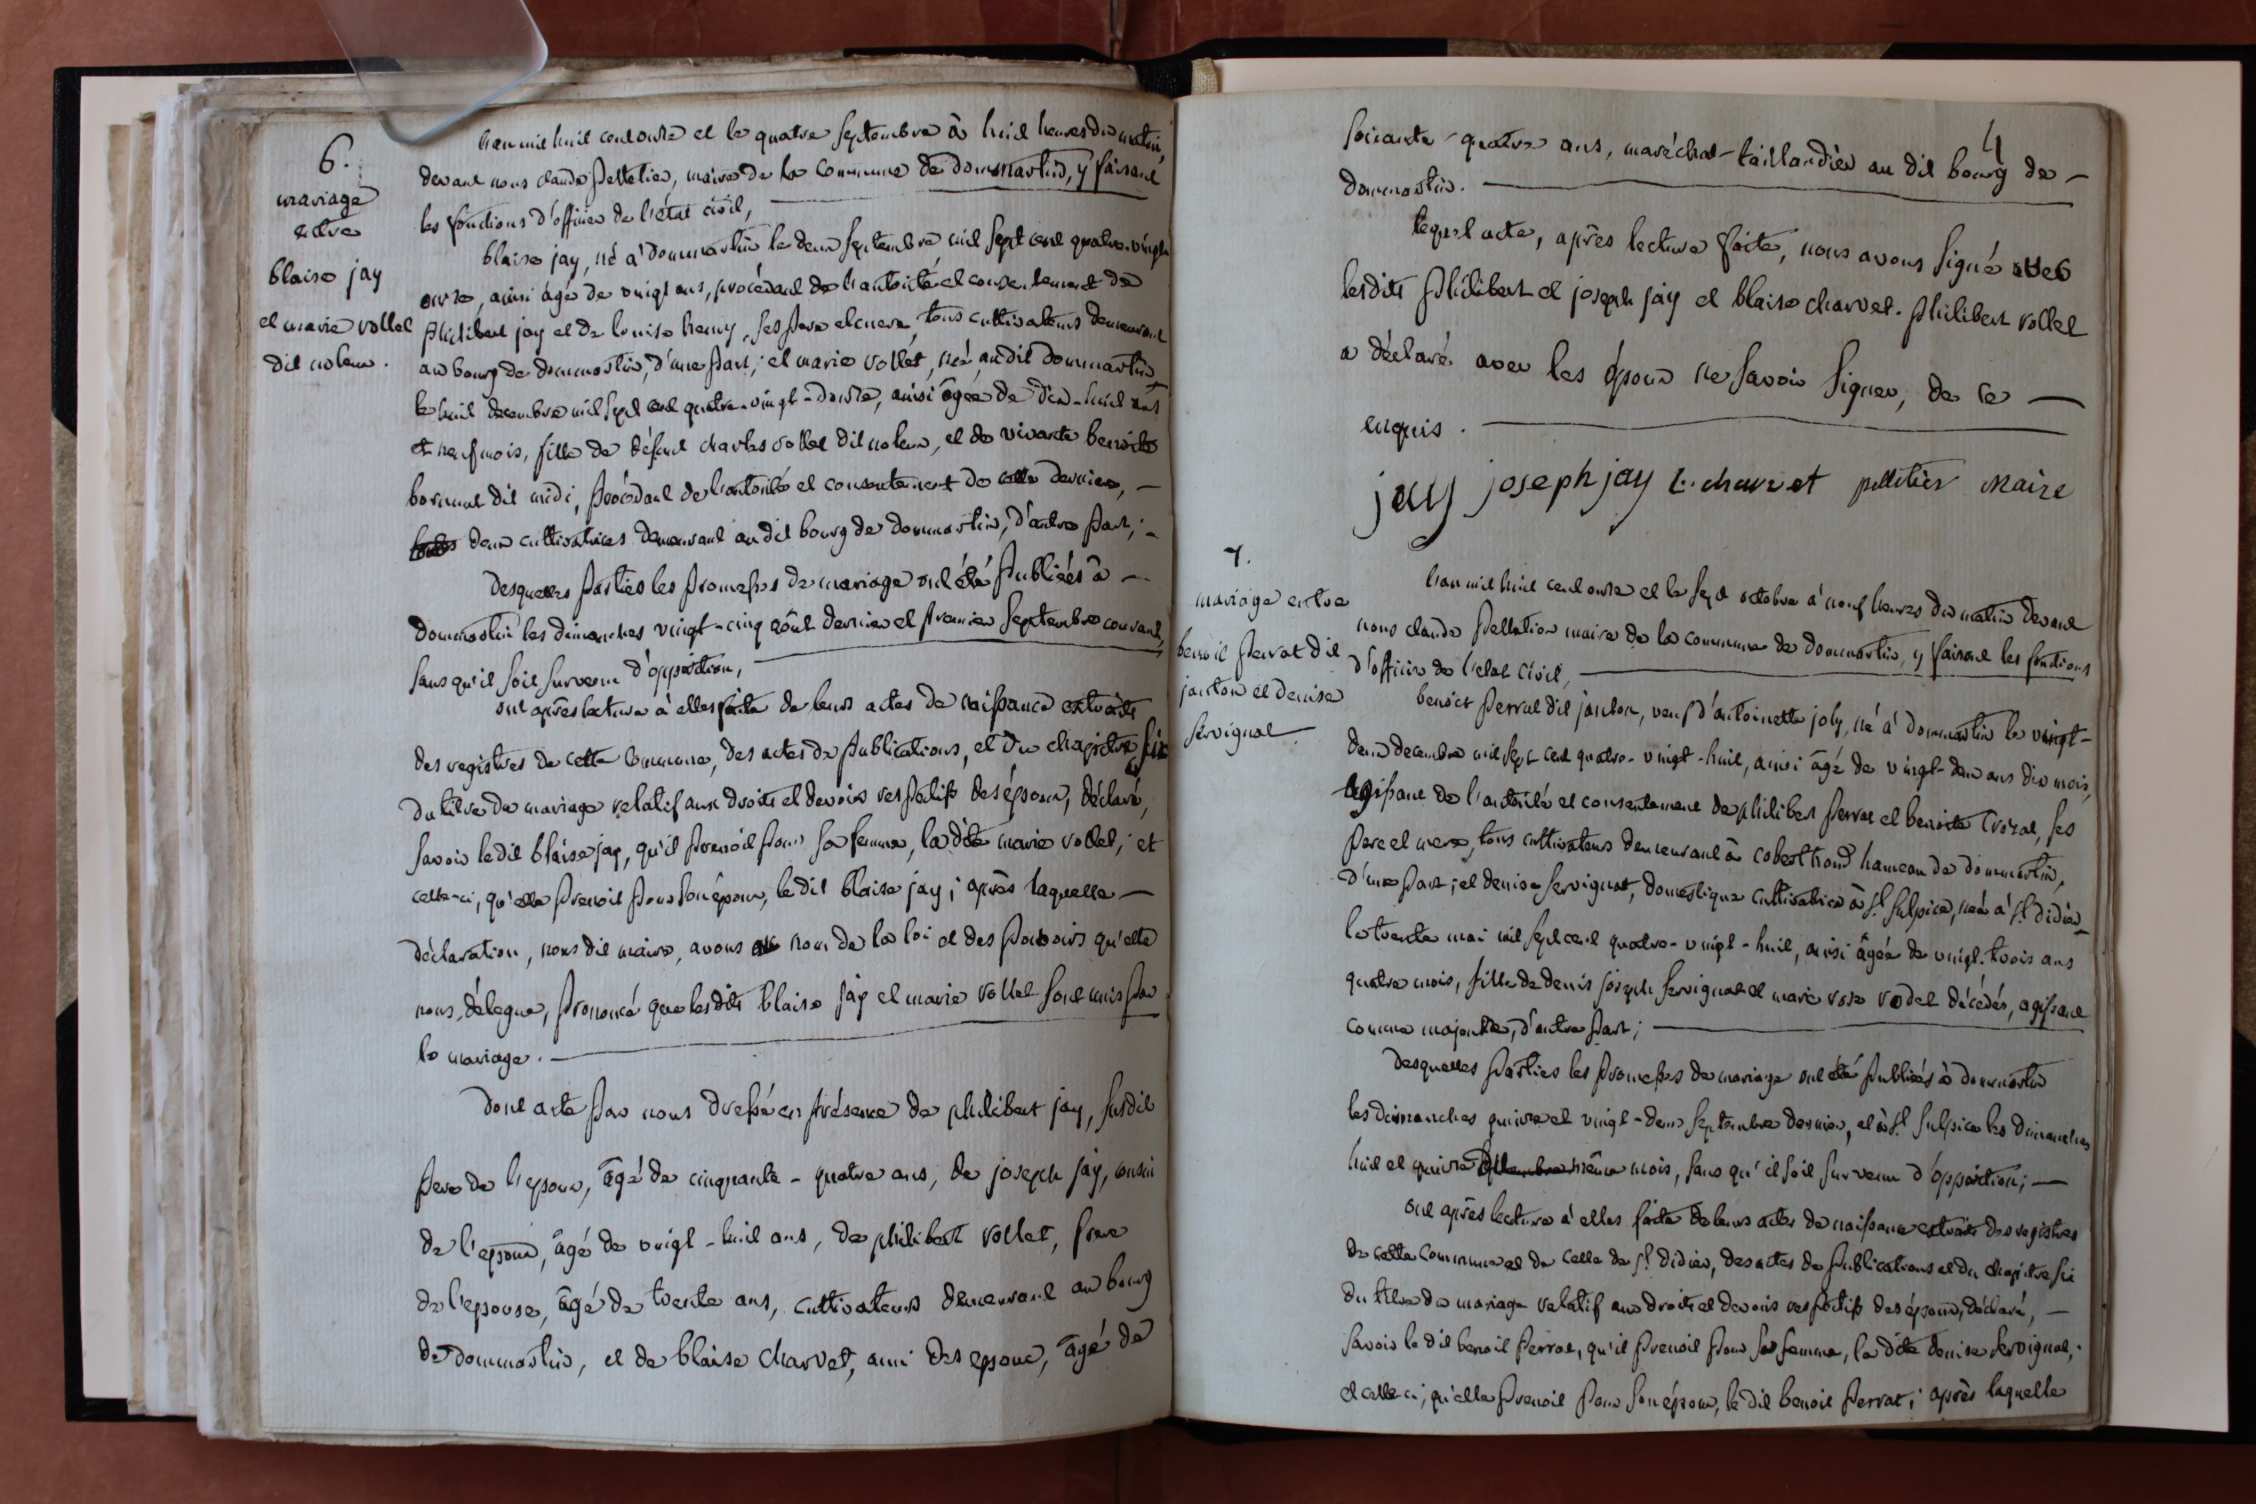 6.
mariage
entre
blaise jay
et marie vollet
dit nolem.
l'an mil huit cent onze et le quatre septembre à huit heures du matin,
devant nous claude pelletier, maire de la commune de dommartin, y faisant
les fonctions d'officier de l'état civil,
blaise jay, né à dommartin le deux septembre mil sept cent quatre-vingt
onze, ainsi âgé de vingt ans, procédant de l'autorité et consentement de
philibert jay et de louise henry, ses pere et mere, tous cultivateurs demeurant
au bourg de dommartin, d'une part; et marie vollet, née audit dommartin
le huit decembre mil sept cent quatre-vingt-douze, ainsi âgée de dix-huit ans
et neuf mois, fille de défunt charles vollet dit nolem, et de vivante benoite
dit midi, procédant de l'autorité et consentement de cette derniere,
deux cultivatrices demeurant au dit bourg de dommartin, d'autre part;
desquelles parties les promesses de mariage ont été publiées à
dommartin les dimanches vingt-cinq août dernier et premier septembre courant,
sans qu'il soit survenu d'opposition,
ont après lecture à elles faite de leurs actes de naissance extraits
des registres de cette commune, des actes de publications, et du chapitre six
du titre du mariage relatif aux droits et devoirs respectifs des époux, déclaré,
savoir le dit blaise jay, qu'il prenoit pour sa femme, la dite marie vollet; et
celle-ci, qu'elle prenoit pour son époux, le dit blaise jay; après laquelle
déclaration, nous dit maire, avons au nom de la loi et des pouvoirs qu'elle
nous délegue, prononcé que lesdits blaise jay et marie vollet sont unis par
le mariage.
dont acte par nous dressé en présence de philibert jay, susdit
pere de l'epoux, âgé de cinquante-quatre ans, de joseph jay, cousin
de l'epoux, âgé de vingt-huit ans, de philibert vollet, frere
de l'epouse, âgé de trente ans, cultivateurs demeurant au bourg
de dommartin, et de blaise charvet, ami des epoux, âgé de
4
soixante-quatre ans, maréchal-taillandier au dit bourg de
dommartin.
lequel acte, après lecture faite, nous avons signé avec
lesdits philibert et joseph jay et blaise charvet. philibert vollet
a déclaré avec les époux ne savoir signer, de ce
enquis.
jay joseph jay b. charvet pelletier maire
7.
mariage entre
benoit perrat dit
janton et denise
servignat.
l'an mil huit cent onze et le sept octobre à neuf heures du matin devant
nous claude pelletier maire de la commune de dommartin, y faisant les fonctions
d'officier de l'etat civil,
benoit perrat dit janton, veuf d'antoinette joly, né à dommartin le vingt-
deux decembre mil sept cent quatre-vingt-huit, ainsi âgé de vingt-deux ans dix mois,
agissant de l'autorité et consentement de philibert perrat et benoite crozat, ses
pere et mere, tous cultivateurs demeurant à coberthoud hameau de dommartin,
d'une part; et denise servignat, domestique cultivatrice à St. sulpice, née à St. didier
le trente mai mil sept cent quatre-vingt-huit, ainsi âgée de vingt-trois ans
quatre mois, fille de denis joseph servignat et marie rose vodet décédés, agissant
comme majeure, d'autre part;
desquelles parties les promesses de mariage ont été publiées à dommartin
les dimanches quinze et vingt-deux septembre dernier, et à St. sulpice les dimanches
huit et quinze même mois, sans qu'il soit survenu d'opposition;
ont après lecture à elles faite de leurs actes de naissance extraits des registres
de cette commune et de celle de St. didier, des actes de publications et du chapitre six
du titre du mariage relatif aux droits et devoirs respectifs des époux, déclaré,
savoir le dit benoit perrat, qu'il prenoit pour sa femme, la dite denise servignat;
et celle-ci, qu'elle prenoit pour son époux, le dit benoit perrat; après laquelle